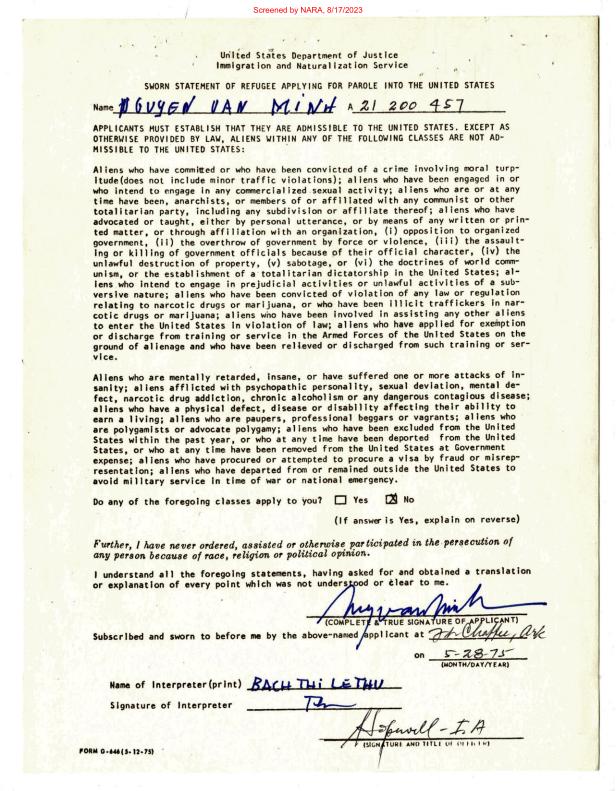 Screened by NARA, 8/17/2023
United States Department of Justice
Immigration and Naturalization Service
SWORN STATEMENT OF REFUGEE APPLYING FOR PAROLE INTO THE UNITED STATES
Name NGUYEN VAN MINH A 21 200 457
APPLICANTS MUST ESTABLISH THAT THEY ARE ADMISSIBLE TO THE UNITED STATES. EXCEPT AS
OTHERWISE PROVIDED BY LAW, ALIENS WITHIN ANY OF THE FOLLOWING CLASSES ARE NOT AD-
MISSIBLE TO THE UNITED STATES:
Aliens who have committed or who have been convicted of a crime involving moral turp-
itude(does not include minor traffic violations); aliens who have been engaged in or
who intend to engage in any commercialized sexual activity; aliens who are or at any
time have been, anarchists, or members of or affiliated with any communist or other
totalitarian party, including any subdivision or affiliate thereof; aliens who have
advocated or taught, either by personal utterance, or by means of any written or prin-
ted matter, or through affiliation with an organization, (i) opposition to organized
government, (ii) the overthrow of government by force or violence, (iii) the assault-
ing or killing of government officials because of their official character, (iv) the
unlawful destruction of property, (v) sabotage, or (vi) the doctrines of world comm-
unism, or the establishment of a totalitarian dictatorship in the United States; al-
iens who intend to engage in prejudicial activities or unlawful activities of a sub-
versive nature; aliens who have been convicted of violation of any law or regulation
relating to narcotic drugs or marijuana, or who have been illicit traffickers in nar-
cotic drugs or marijuana; aliens who have been involved in assisting any other aliens
to enter the United States in violation of law; aliens who have applied for exemption
or discharge from training or service in the Armed Forces of the United States on the
ground of alienage and who have been relieved or discharged from such training or ser-
vice.
Aliens who are mentally retarded, insane, or have suffered one or more attacks of in-
sanity; aliens afflicted with psychopathic personality, sexual deviation, mental de-
fect, narcotic drug addiction, chronic alcoholism or any dangerous contagious disease;
aliens who have a physical defect, disease or disability affecting their ability to
earn a living; aliens who are paupers, professional beggars or vagrants; aliens who
are polygamists or advocate polygamy; aliens who have been excluded from the United
States within the past year, or who at any time have been deported from the United
States, or who at any time have been removed from the United States at Government
expense; aliens who have procured or attempted to procure a visa by fraud or misrep-
resentation; aliens who have departed from or remained outside the United States to
avoid military service in time of war or national emergency.
Do any of the foregoing classes apply to you? ☐ Yes ☒ No
(If answer is Yes, explain on reverse)
Further, I have never ordered, assisted or otherwise participated in the persecution of
any person because of race, religion or political opinion.
I understand all the foregoing statements, having asked for and obtained a translation
or explanation of every point which was not understood or clear to me.
(COMPLETE & TRUE SIGNATURE OF APPLICANT)
Subscribed and sworn to before me by the above-named applicant at Ft. Chaffee, Ark
on 5-28-75
(MONTH/DAY/YEAR)
Name of Interpreter(print) BACH THI LE THU
Signature of Interpreter
(SIGNATURE AND TITLE OF OFFICER)
FORM G-646(5-12-75)